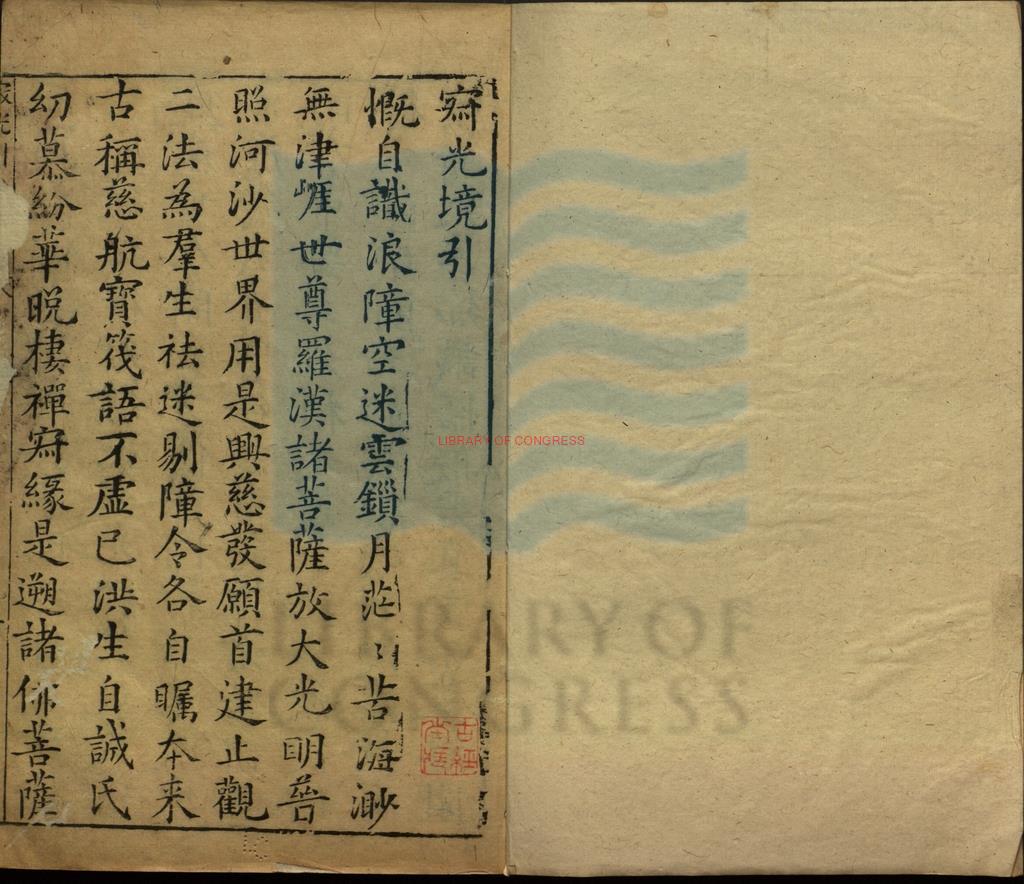 寂光境引
慨自識浪障空迷雲鎖月茫〻苦海渺
無津崕世尊羅漢諸菩薩放大光明普
照河沙世界用是興慈發願首建止觀
二法為羣生祛迷剔障令各自矚夲来
古稱慈航寶筏語不虛已洪生自誠氏
幻慕紛華晩棲禪寂緣是遡諸佛菩薩
LIBRARY OF CONGRESS
LIBRARY OF
CONGRESS